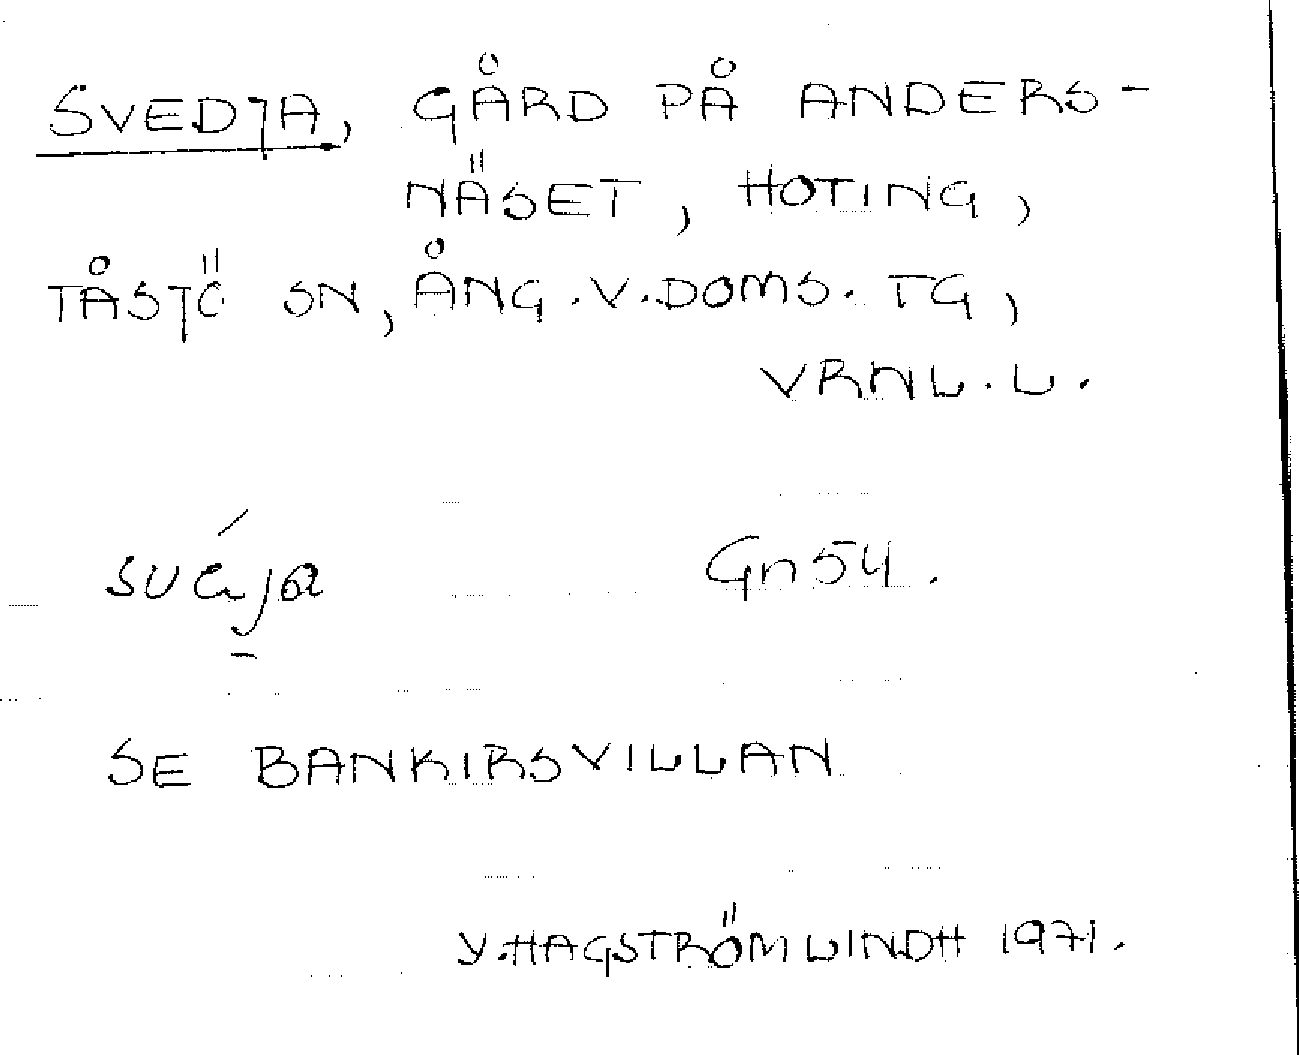 SVEDJA, GÅRD PÅ ANDERS-
NÄSET, HOTING,
TÅSJÖ SN, ÅNG.V.DOMS.TG,
VRNL.L.
Gn54.
SE BANKIRSVILLAN
Y.HAGSTRÖM LINDH 1971.